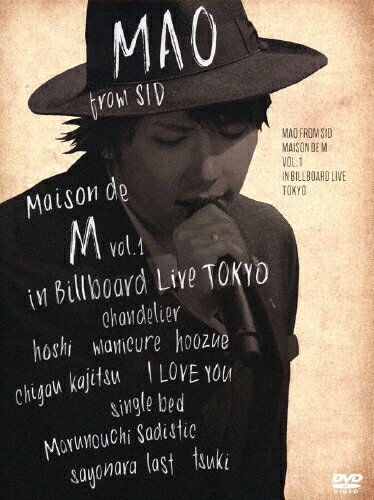 MAO
from SID
MAO FROM SID
MAISON DE M
VOL.1
IN BILLBOARD LIVE
TOKYO
Maison de
M vol.1
in Billboard Live TOKYO
chandelier
hoshi manicure hoozue
chigau kajitsu I LOVE YOU
single bed
Marunouchi Sadistic
sayonara last tsuki
DVD
VIDEO